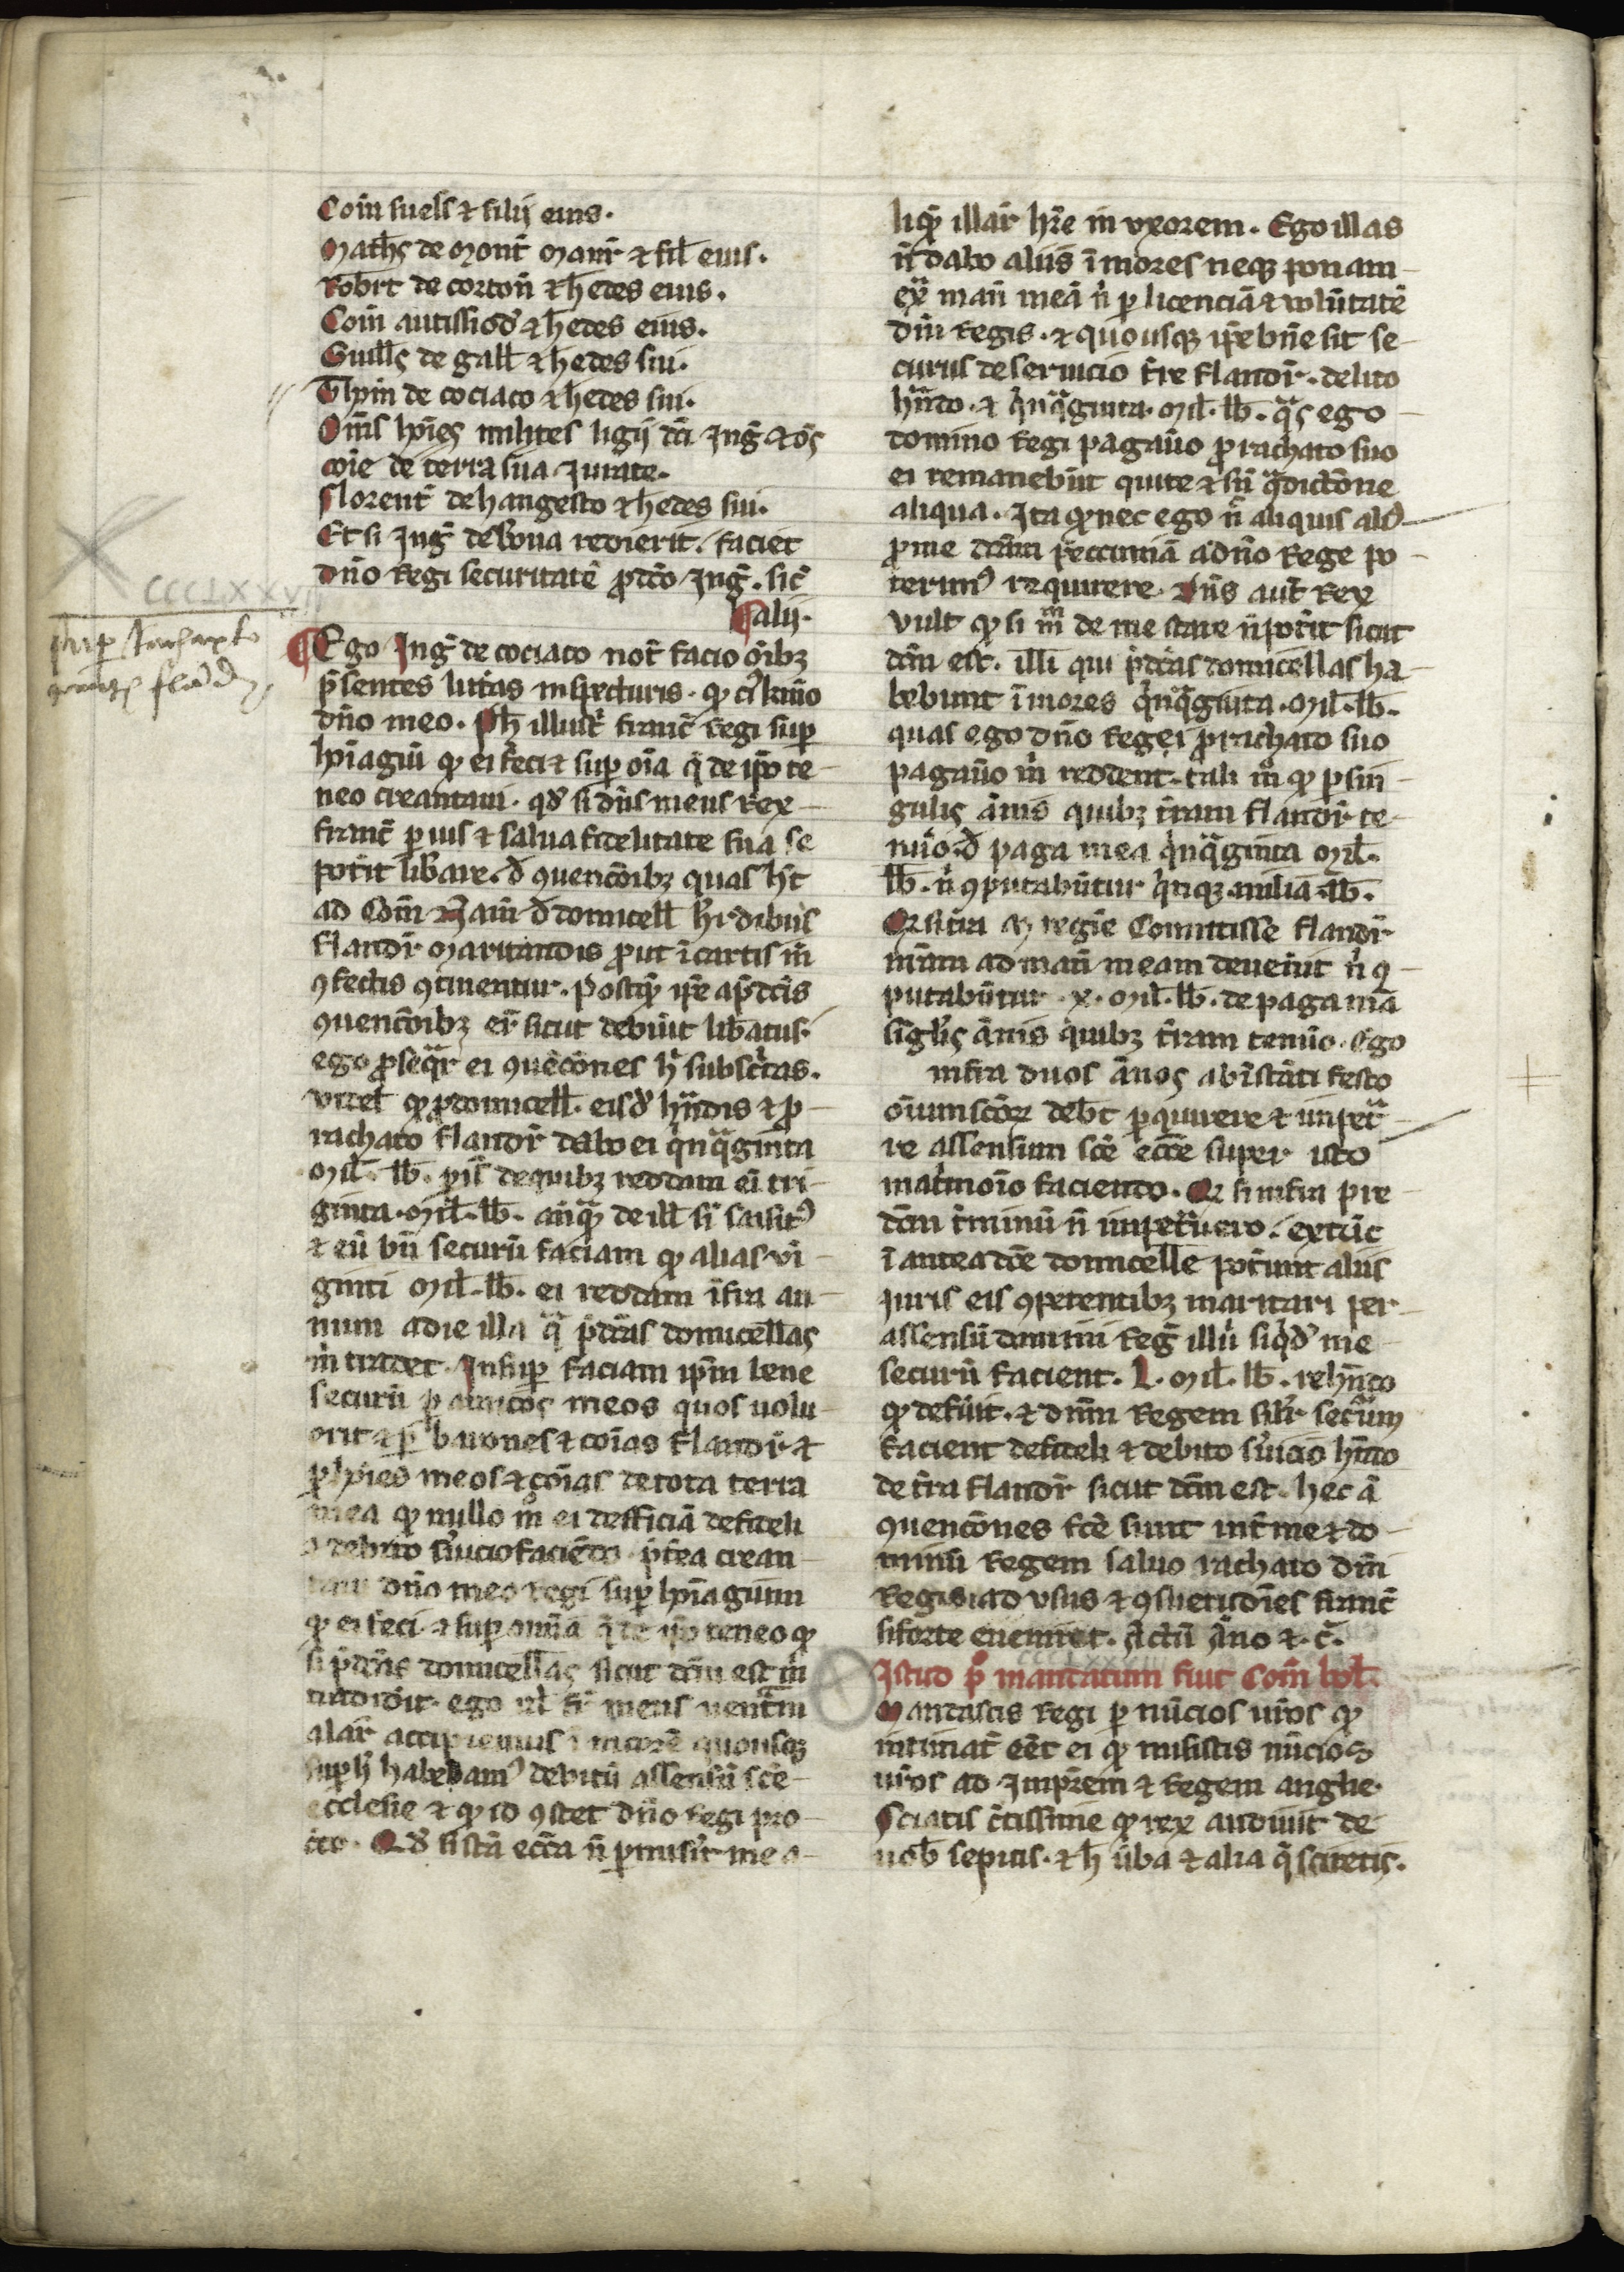 Com̄ suess̄ ⁊ filij eius.
Math̄s de Mont̄ Maur̄ ⁊ fil̄ eius.
Rob̄rt de corton̄ ⁊ h̄edes eius.
Com̄ autissiod̄ ⁊ h̄edes eius.
Guill̄s de gall̄ ⁊ h̄edes sui.
Th̄m de cociaco ⁊ h̄edes sui.
Om̄s hōies milites ligij dc̄i Inḡ ⁊ oēs
cōie de terra sua Iurate.
Florent̄ de hangesto ⁊ h̄edes sui.
Et si Inḡ de boua redierit. faciet
dn̄o Regi securitatē p̄dc̄o Inḡ. sic̄
alij.
CCCLXXVII
sup̄ Rachapto
comit̄ fland̄
Ego Inḡ de cociaco not̄ facio om̄ibꝫ
p̄sentes litt̄as inspecturis. ꝙ c̄ kmo
dn̄o meo. Ph̄ illust̄ franc̄ Regi sup̄
hōiagiū ꝙ ei feci ⁊ sup̄ om̄ia q̄ de ip̄o te
neo creantaui. qd̄ si dn̄s meus Rex
franc̄ p̄ ius ⁊ salua fidelitate sua se
pot̄it lib̄are. d̄ ꝯuenc̄oibꝫ quas h̄t
ad Com̄ Nam̄ d̄ domicell̄ h̄edibus
flandr̄ Maritandis put ī cartis īn
ꝯfectis ꝯtinentur. Postq̄ ip̄e a p̄dc̄is
ꝯuenc̄oibꝫ er̄ sicut debuit lib̄atus.
ego p̄seq̄r ei ꝯuēc̄ones h̄ subsc̄ptas.
videl̄ ꝙ p̄ domicell̄. eisd̄ hn̄dis ⁊ p̄
rachato flandr̄ dabo ei q̄nq̄ginta
Mil̄. lb̄. p̄is̄ de quibꝫ reddam ei tri
ginta. Mil̄. lb̄. anq̄ de ill̄ sī saisit9
⁊ eū bn̄ securū faciam ꝙ alias vi
ginti Mil̄. lb̄. ei reddam īfra an
num a die illa q̄ p̄dc̄as domicellas
m̄ tradet. Insup̄ faciam ip̄m bene
securū p̄ amicos meos quos uolu
erit ⁊ p̄ barones ⁊ cōias flandr̄ ⁊
p̄ hōies meos ⁊ cōias de tota terra
mea ꝙ nullo m̊ ei defficiā de fideli
⁊ debito s̄uicio faciēdo. p̄t̄ea crean
taui dn̄o meo regi sup̄ hōiagium
ꝙ ei feci. ⁊ sup̄ om̄ia q̄ de ip̄o teneo ꝙ
si p̄dc̄as domicellas sicut dc̄m est m̄
tradid̄it. ego ul̄ fr̄ meus neut̄m
alar̄ accipiemus ī uxorē quousqꝫ
sup̄ h̄ habeam9 debitū assensū sc̄e
ecclesie ⁊ ꝙ id ꝯstet dn̄o Regi pro
c̄to. Qd̄ si sc̄ā ecc̄a n̄ p̄misit me a
liq̄ illar̄ h̄re in vxorem. Ego illas
n̄ dabo aliis ī uxores neqꝫ ponam
ex̄ man̄ meā n̄ p̄ licenciā ⁊ volūtatē
dn̄i Regis. ⁊ quousqꝫ ip̄e bn̄e sit se
curus de seruicio t̄re flandr̄. debito
hn̄do. ⁊ q̄nq̄ginta. Mil̄. lb̄. q̄s ego
domino Regi pagauo p̄ rachato suo
ei remanebūt quite ⁊ sn̄ ꝯdictōne
aliqua. Ita ꝙ nec ego n̄ aliquis aliꝰ
p̄ me dc̄am peccuniā a dn̄o Rege po
terim9 requirere. Dn̄s aut̄ Rex
vult ꝙ si m̄m de me stare n̄ pot̄it sicut
dc̄m est. illi qui p̄dc̄as domicellas ha
bebunt ī uxores q̄nq̄ginta. Mil̄. lb̄.
quas ego dn̄o Regei p̄ rachato suo
pagauo m̄ reddent. tali m̊ ꝙ p̄ sin
gulis ānis quibꝫ t̄ram flandr̄ te
nuo. d̄ paga mea q̄nq̄ginta Mil̄.
lb̄. n̄ ꝯputabūtur q̄nqꝫ milia. lb̄.
Qd̄ si t̄ra M. regine Comitisse flandr̄
m̄am ad man̄ meam deueniūt n̄ ꝯ
putabūtur. x. Mil̄. lb̄. de paga mā
singlis ānis quibꝫ t̄ram tenuo. Ego
infra duos ānos ab instāti festo
om̄ium sc̄oꝝ deb̄t p̄quirere ⁊ impet̄
re assensum sc̄e ecc̄e super isto
mat̄monio faciendo. Qd̄ si infra pre
dc̄m t̄minū n̄ impet̄uero. extūc
ī antea dc̄e domicelle pot̄unt aliis
Iuris eis ꝯpetentibꝫ maritari per
assensū domini Reḡ illi siq̄d̄ me
securū facient. L. Mil̄. lb̄. rehn̄do
ꝙ defuit. ⁊ dn̄m Regem sil̄r secūm
facient de fideli ⁊ debito s̄uicio hn̄do
de t̄ra flandr̄ sicut dc̄m est. hec ā
ꝯuenc̄ones fc̄e sunt int̄ me ⁊ do
minū Regem saluo rachato dn̄i
Regis. ad vsus ⁊ ꝯsuetudīes franc̄
si forte eueniret. Actū āno ⁊ c̄.
Istud p̊ mandatum fuit Com̄ bol̄.
Mandastis Regi p̄ nūcios uros ꝙ
intimat̄ eēt ei ꝙ misistis nūcios
uros ad Imp̄rem ⁊ Regem anglie.
Sciatis c̄tissime ꝙ rex audiuit de
uob̄ sepius. ⁊ h̄ ūba ⁊ alia q̄ scitetis.